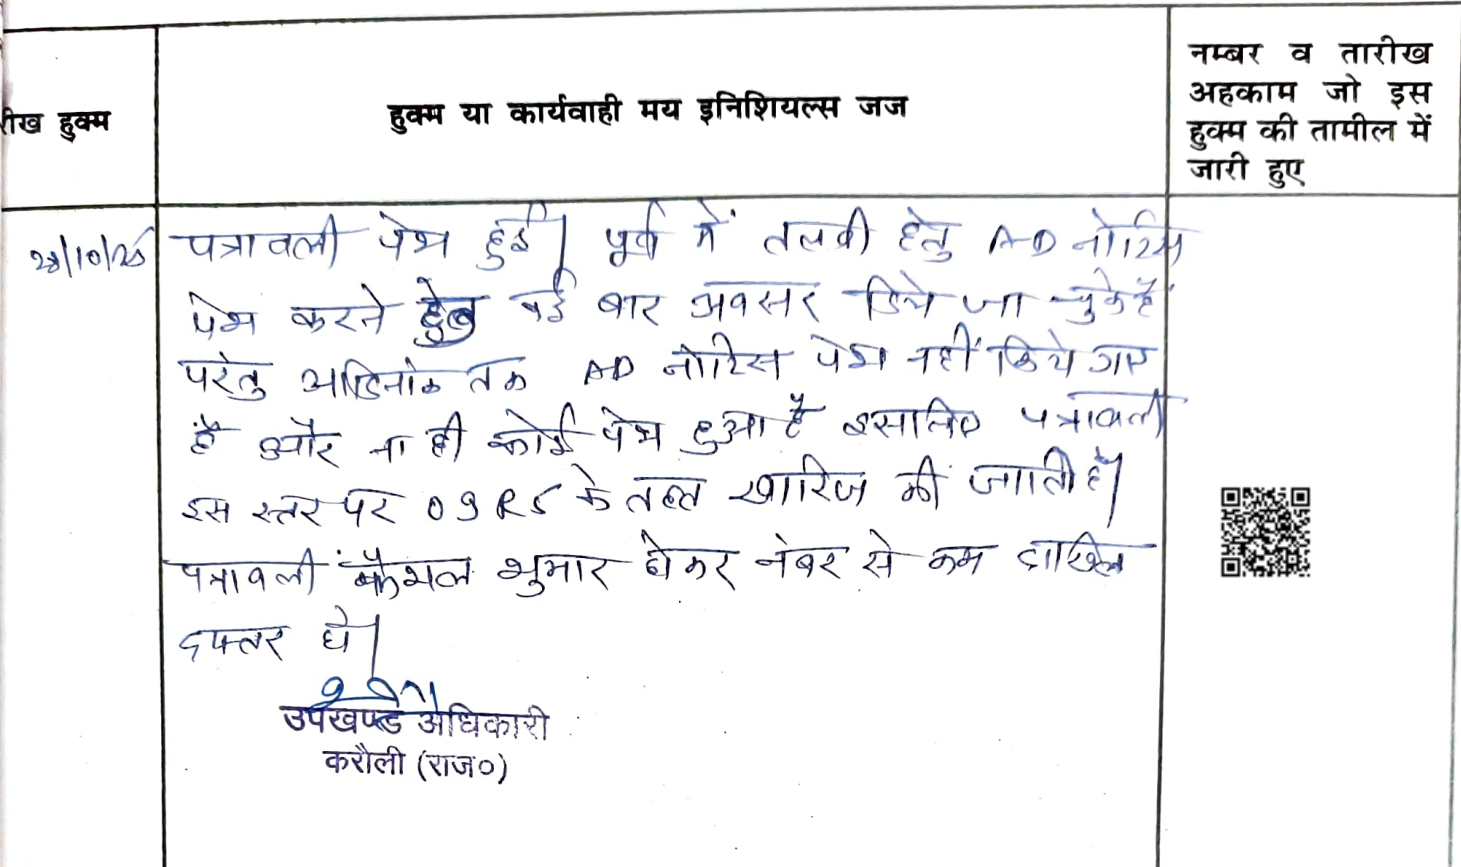 रीख हुक्म
हुक्म या कार्यवाही मय इनिशियल्स जज
नम्बर व तारीख
अहकाम जो इस
हुक्म की तामील में
जारी हुए
पत्रावली पेश हुई। पूर्व में तलवी हेतु AD नोटिस
पेश करने हेतु कई बार अवसर दिये जा चुके हैं
परंतु आदिनांक तक AD नोटिस पेश नहीं किये गए
है और ना ही कोई पेश हुआ है इसलिए पत्रावली
इस स्तर पर O9R5 के तहत खारिज की जाती है।
पत्रावली फैशल शुमार होकर नंबर से कम दाखिल
दफ्तर हो।
उपखण्ड अधिकारी
करौली (राज०)